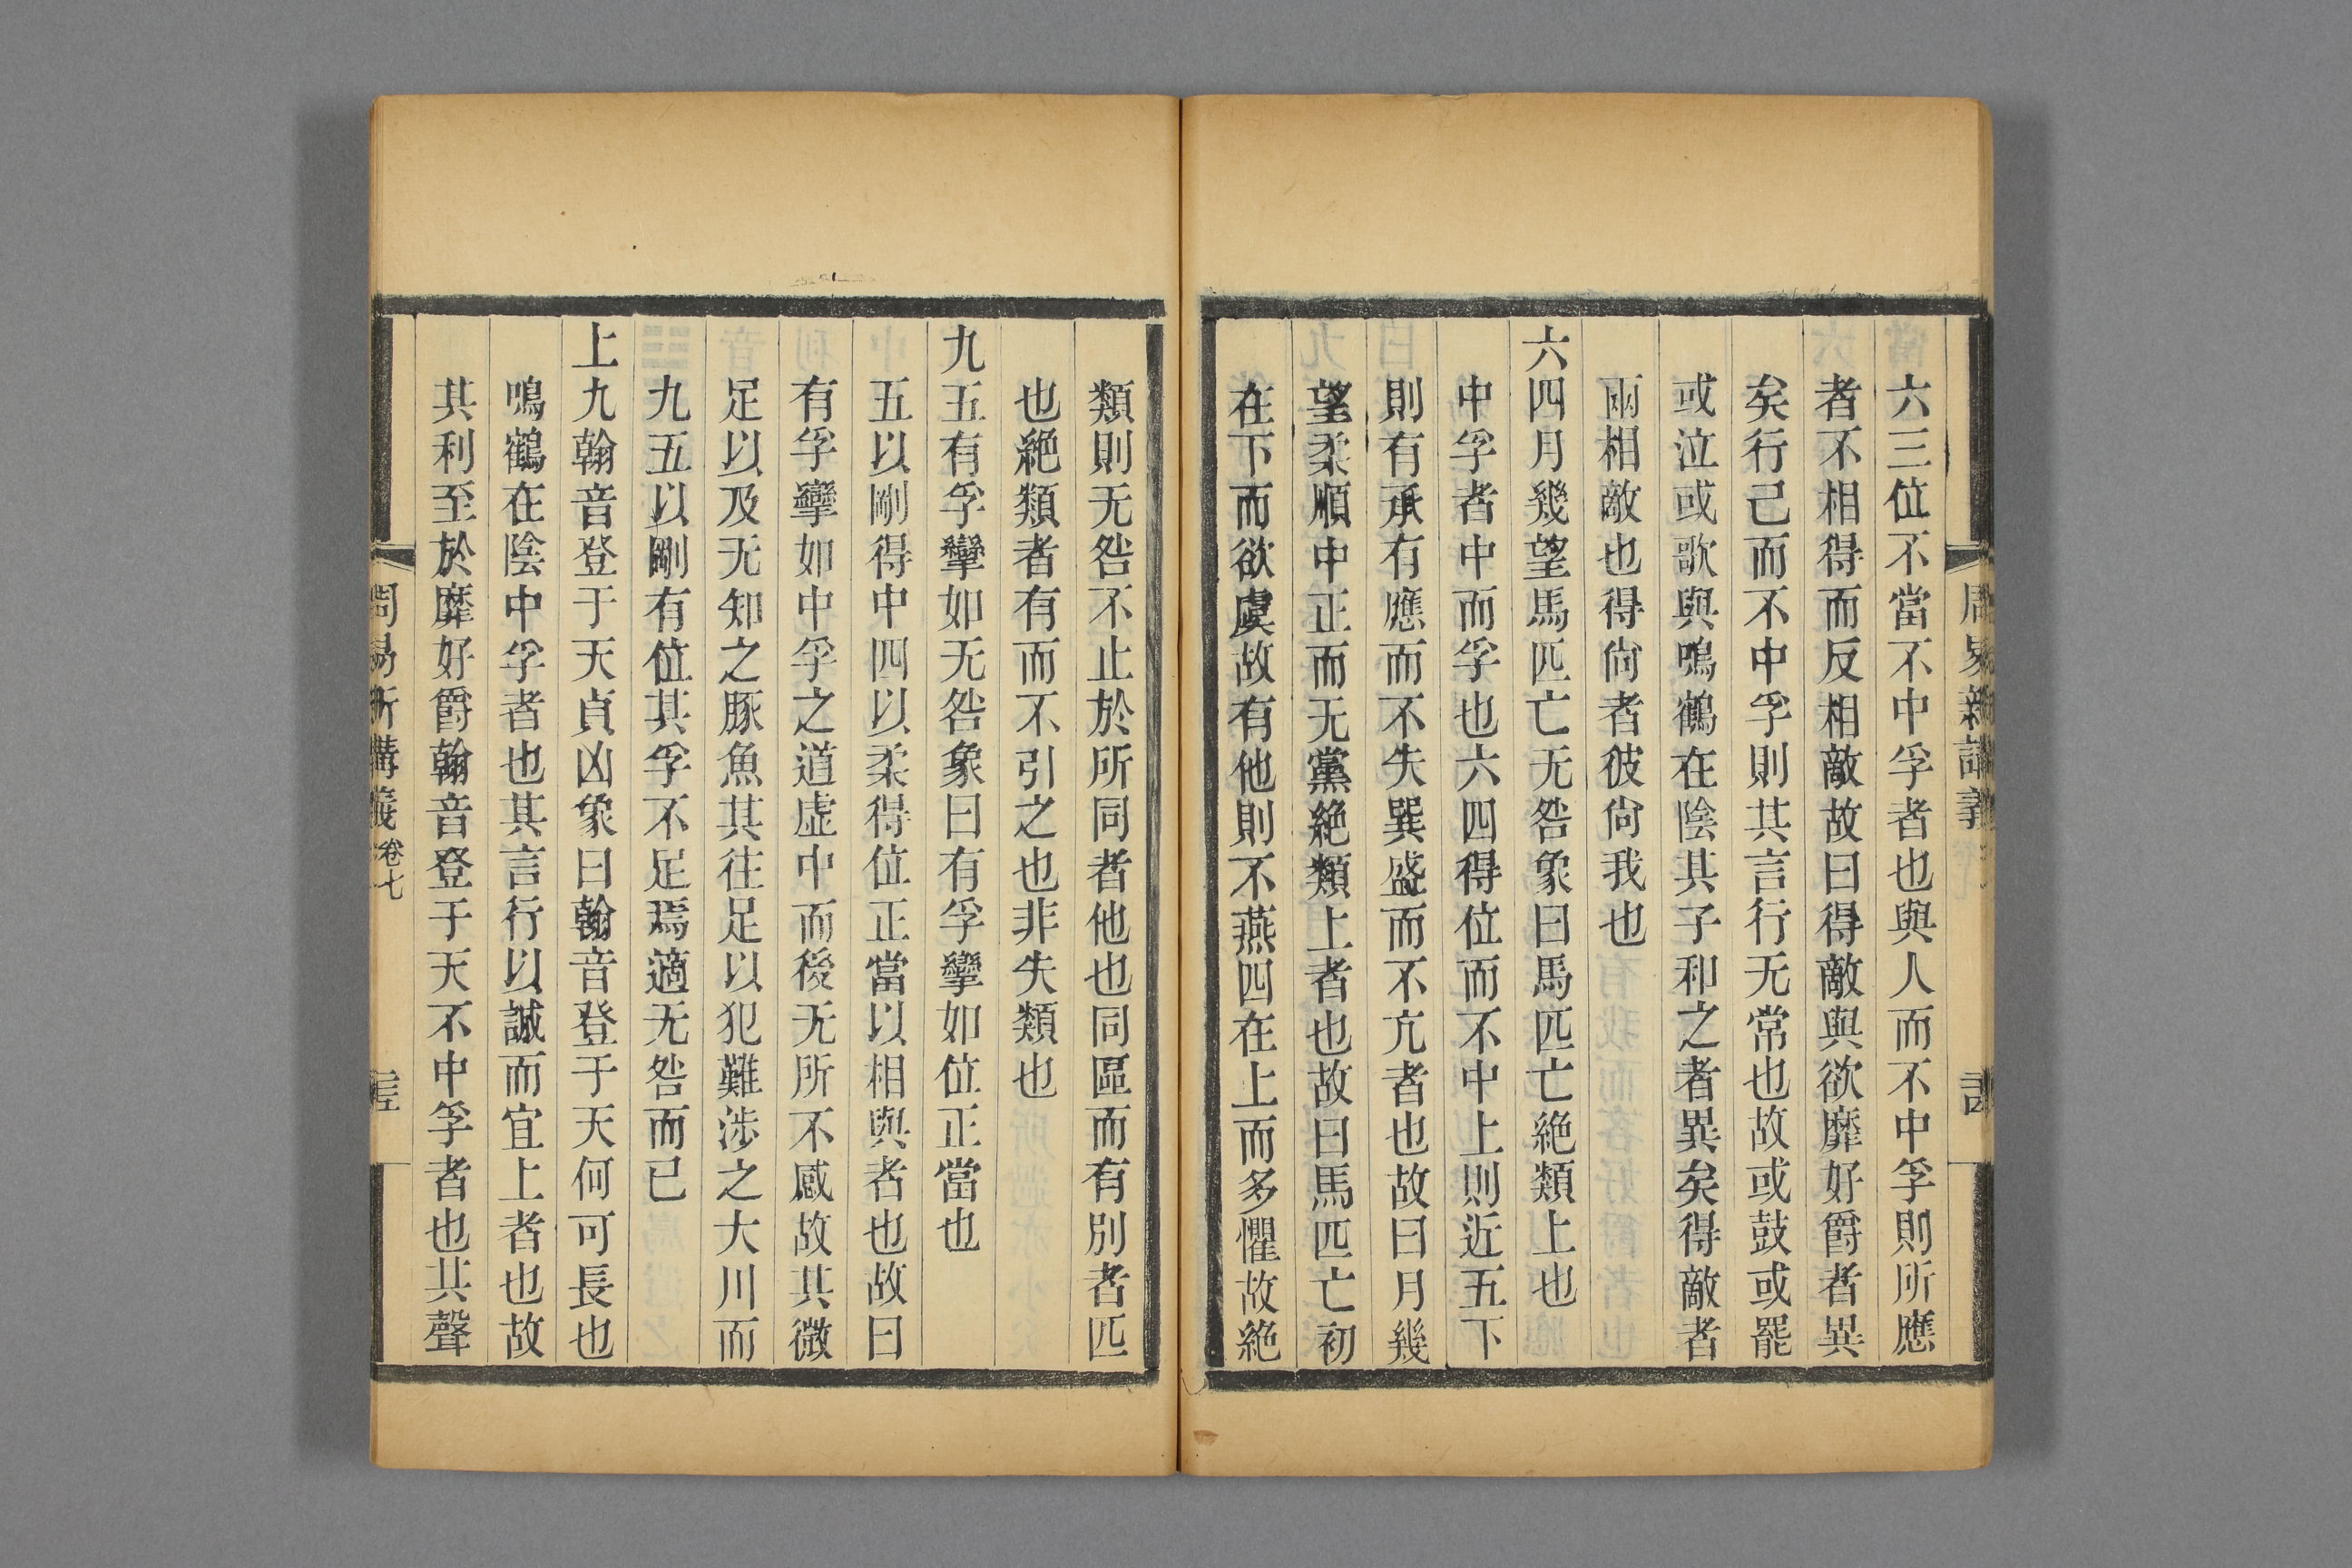 周易新講義
六三位不當不中孚者也與人而不中孚則所應
者不相得而反相敵故曰得敵與欲靡好爵者異
矣行己而不中孚則其言行无常也故或鼓或罷
或泣或歌與鳴鶴在陰其子和之者異矣得敵者
兩相敵也得尙者彼尙我也
六四月幾望馬匹亡无咎象曰馬匹亡絶類上也
中孚者中而孚也六四得位而不中上則近五下
則有承有應而不失巽盛而不亢者也故曰月幾
望柔順中正而无黨絶類上者也故曰馬匹亡初
在下而欲虞故有他則不燕四在上而多懼故絶
類則无咎不止於所同者他也同區而有別者匹
也絶類者有而不引之也非失類也
九五有孚攣如无咎象曰有孚攣如位正當也
五以剛得中四以柔得位正當以相與者也故曰
有孚攣如中孚之道虛中而後无所不感故其微
足以及无知之豚魚其往足以犯難涉之大川而
九五以剛有位其孚不足焉適无咎而已
上九翰音登于天貞凶象曰翰音登于天何可長也
鳴鶴在陰中孚者也其言行以誠而宜上者也故
其利至於靡好爵翰音登于天不中孚者也其聲
周易新講義 卷七